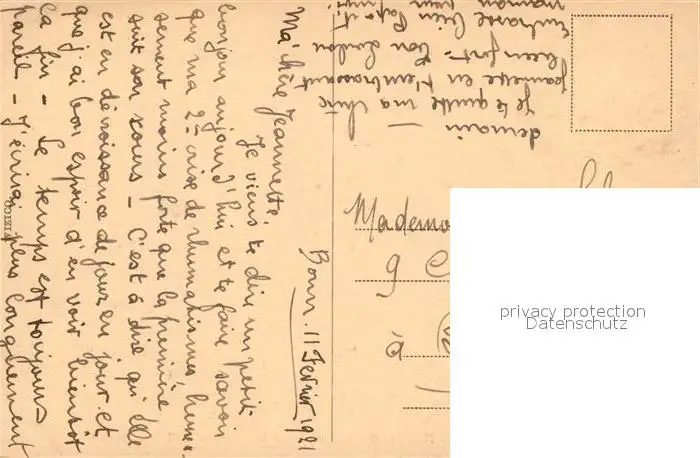 Bonn. 11 Fevrier 1921
Ma chère Jeannette.
Je viens te dire un petit
bonjour aujourd'hui et te faire savoir
que ma 2me crise de rhumatismes, heureu-
sement moins forte que la première
suit son cours - C'est à dire qu'elle
est en décroissance de jour en jour et
que j'ai bon espoir d'en voir bientôt
la fin - Le temps est toujours
pareil - J'écrirai plus longuement
demain -
Je te quitte ma chère
Jeannette en t'embrassant
bien fort - Ton Loulou
Embrasse bien Papa et
maman pour
Mademo
9
à
privacy protection
Datenschutz